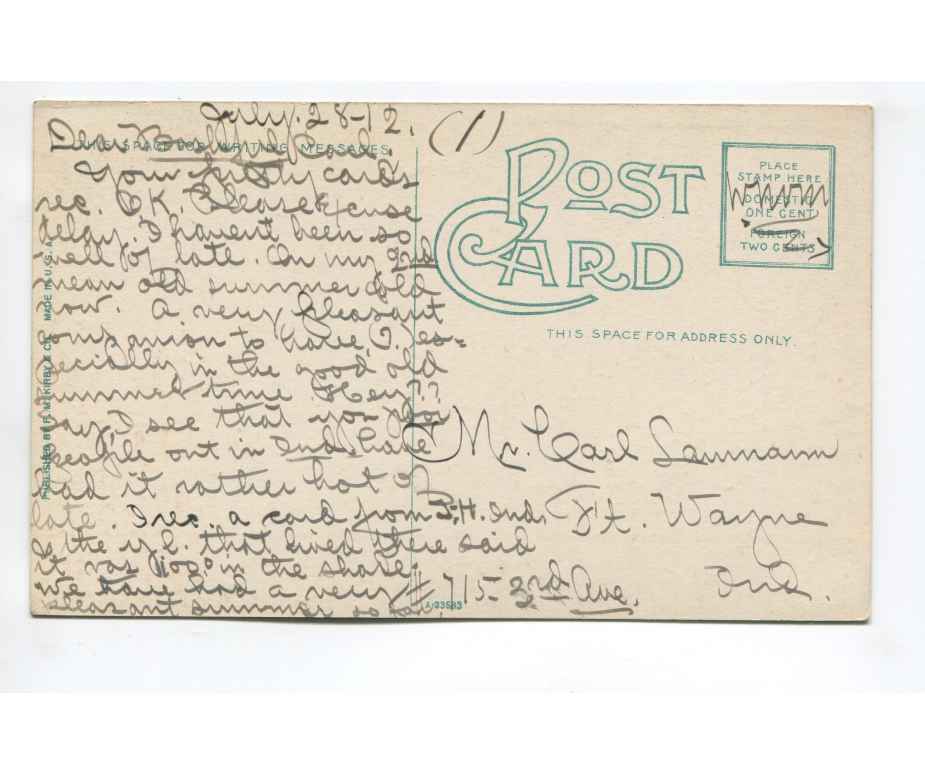 July. 28-12.
(1)
THIS SPACE FOR WRITING MESSAGES
Dear Carl.
Your pretty cards
rec. O.K. Please Excuse
delay. I havent been so
well of late. On my 2nd
mean old summer cold
now. A very pleasant
companion to have, O, es=
pecially in the good old
summer time Hey??
Say, I see that you
people out in Ind. have
had it rather hot of
late. I rec. a card from
the y. l. that lived there said
it was 100° in the shade.
We have had a very
pleasant summer so far.
PUBLISHED BY F. M. KIRBY & CO. MADE IN U.S.A.
POST
CARD
PLACE
STAMP HERE
DOMESTIC
ONE CENT
FOREIGN
TWO CENTS
THIS SPACE FOR ADDRESS ONLY.
Mr. Carl Laumann
Ft. Wayne
Ind.
# 715- 3rd Ave.
A-33583